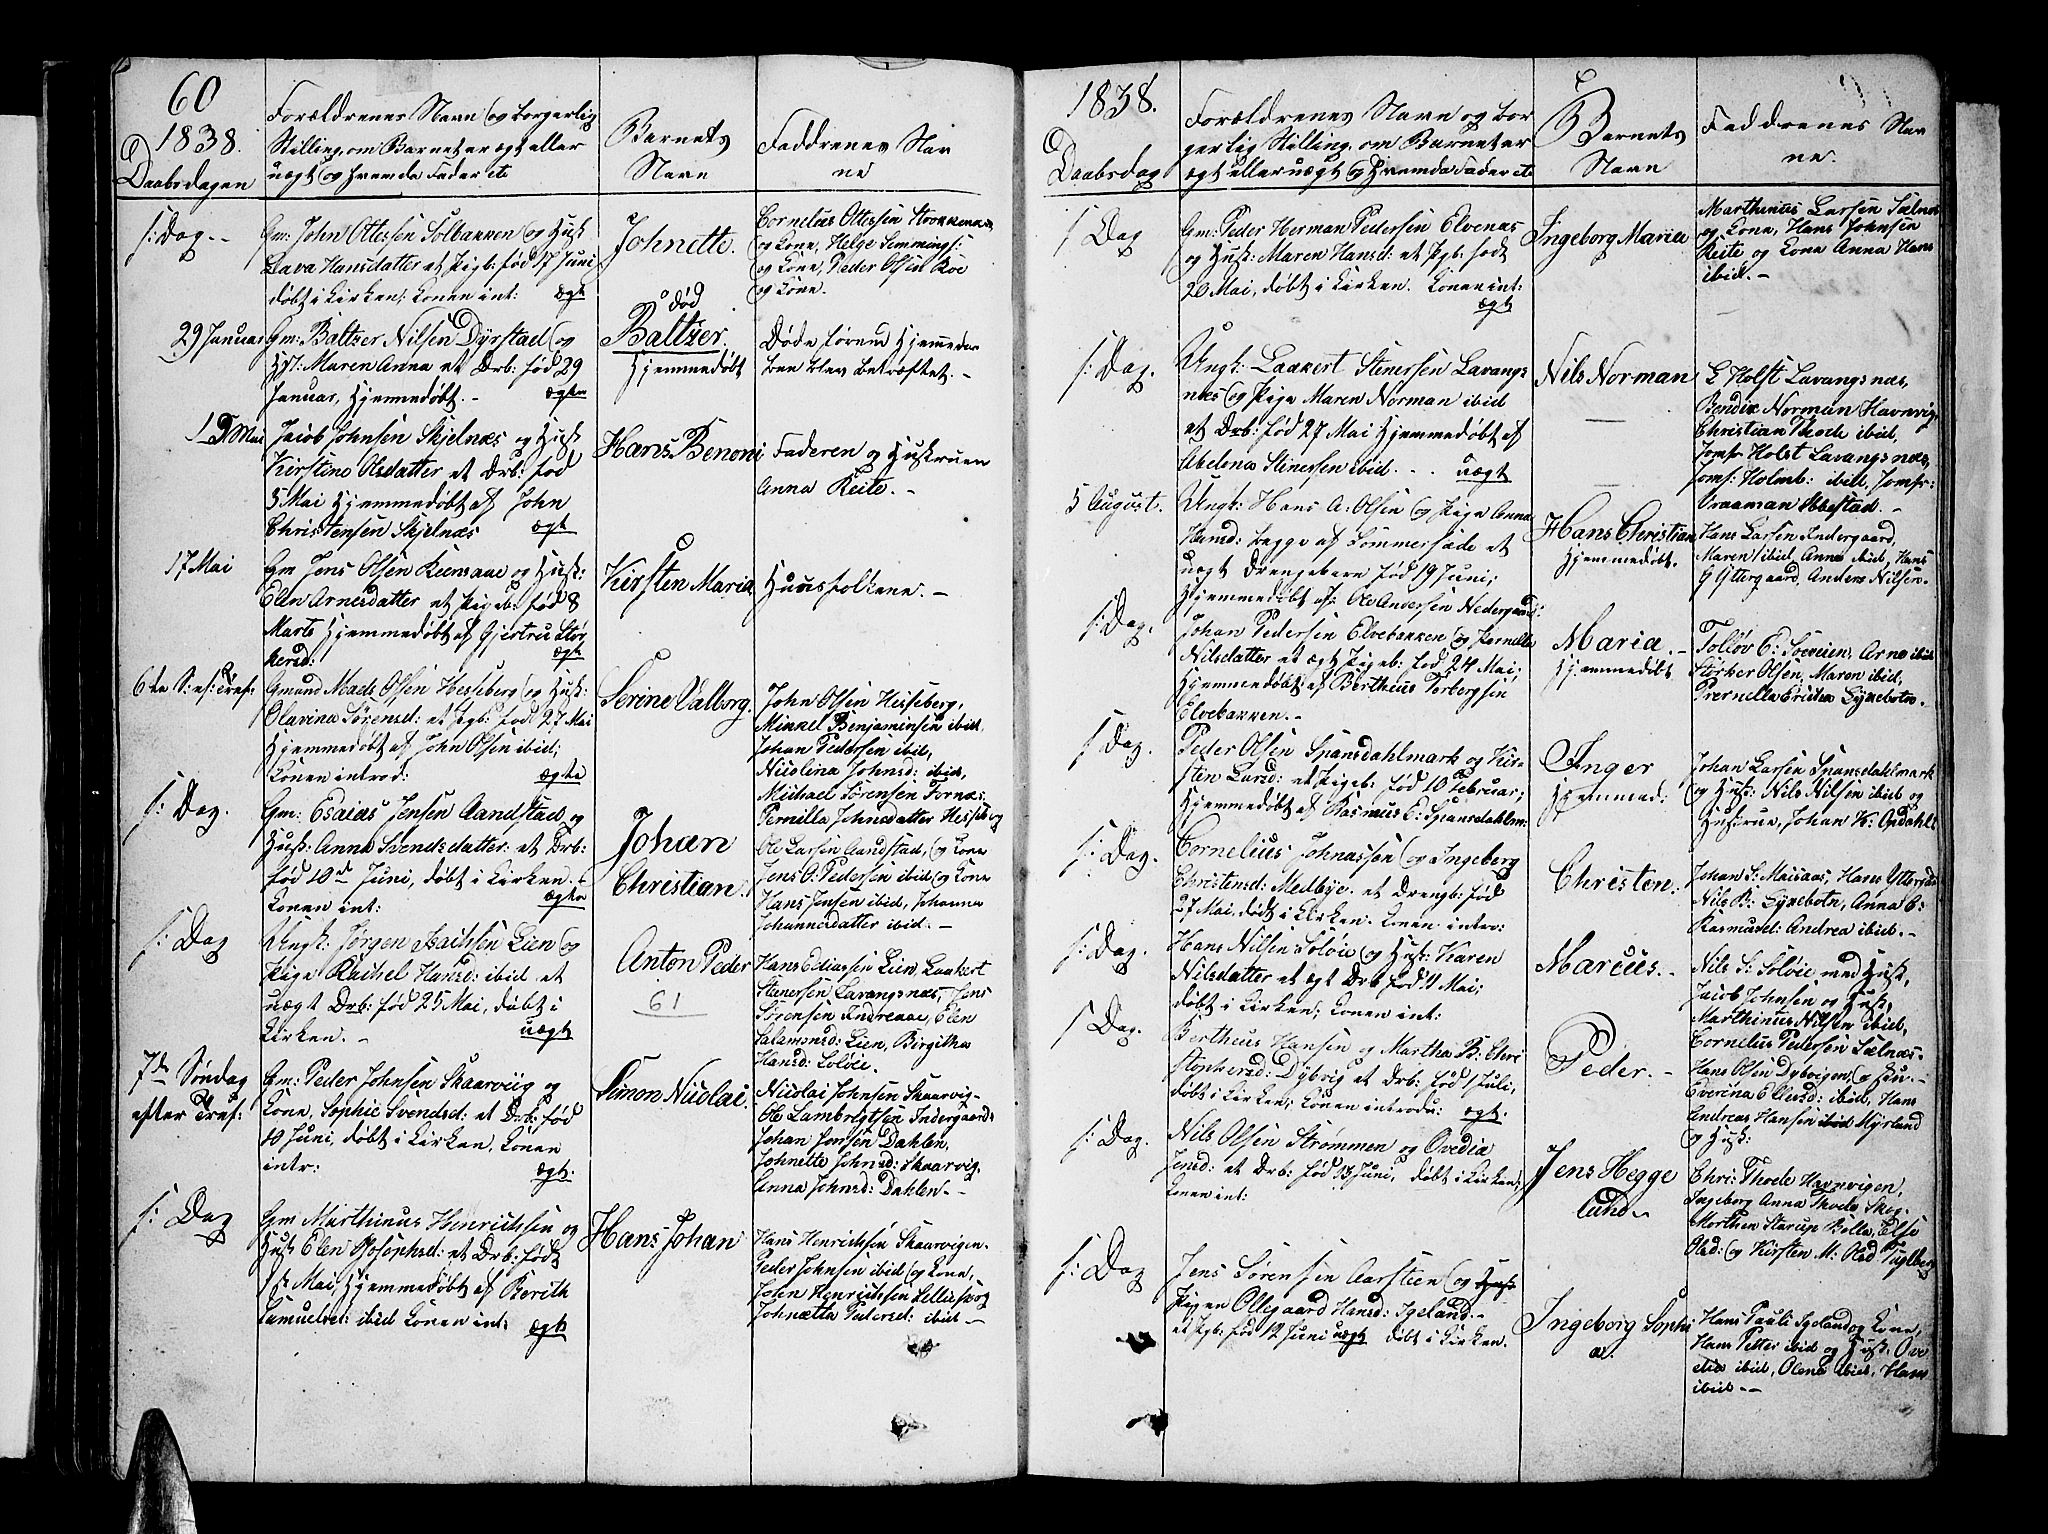 60
1838.
Daabsdagen
Forældrenes Navn og borgerlig
Stilling, om Barnet er ægt eller
uægt og hvem da Fader etc
Barnets
Navn
Faddrenes Nav
ne
s: Dag. -
Gm: John Ottesen Solbakken og Husk
Lava Hansdatter et Pigb: fød 17 Juni
døbt i Kirken, Konen int: ægte
Johnette.
Cornelius Ottesen
og Kone, Helge Hemmings:
og Kone, Peder Olsen Roe
og Kone.
29 Januar
Gm: Baltzer Nilsen Dyrstad og
Hst: Maren Anna et Drb: fød 29
Januar, Hjemmedøbt. - ægte
død
Baltzer.
Hjemmedøbt
Døde førend Hjemmedaa-
ben blev bekræftet. -
19 Mai
Jacob Johnsen Skjelnæs og Husk
Kirstine Olsdatter et Drb: fød
5 Mai Hjemmedøbt af John
Christensen Skjelnæs ægt
Hans Benoni
Faderen og Huskruen
Anna Reite. -
17 Mai
Gm Jens Olsen Keensaae og Husk:
Elen Arnesdatter et Pigeb: fød 8
Marts Hjemmedøbt af Gjertru Stør
kersd: ægte
Kirsten Maria
Huusfolkene. -
6te S: ef: Tref:
Gmand Mads Olsen Hesseberg og Husk:
Olavina Sørensd: et Pgb: fød 27 Mai
Hjemmedøbt af John Olsen ibid;
Konen introd: ægte
Serine Valborg.
John Olsen Hesseberg,
Mikkel Benjaminsen ibid,
Johan Pedersen ibid,
Nicolina Johnsd: ibid,
Michael Sørensen Fornæs
Pernilla Johnsdatter Hesseberg
s: Dag.
Gm: Esaias Jensen Aandstad og
Husk: Anna Svendsdatter: et Drb:
fød 10de Juni, døbt i Kirken.
Konen int: ægte
Johan
Christian.
Ole Larsen Aandstad, og Kone
Jens O: Pedersen ibid og Kone
Hans Jensen ibid, Johanna
Johannesdatter ibid. -
s: Dag
Ungk: Jørgen Isachsen Lien og
Pige Rachel Hansd: ibid et
uægt Drb: fød 25 Mai, døbt i
Kirken. - uægt
Anton Peder
61
Hans Ediassen Lien, Laakert
Steenersen Lavangsnæs, Jens
Sørensen Indreaae, Elen
Salamonsd: Lien, Birgitha
Hansd: Soløie.
7de Søndag
efter Tref:
Gm: Peder Johnsen Skaarviig og
Kone, Sophie Svendsd: et Drb: fød
10 Juni, døbt i Kirken, Konen
intr: ægt.
Simon Nicolai.
Nicolai Johnsen Skaarvig -
Ole Lambrigtsen Indergaard:
Johan Jonsen Dahlen,
Johnette Johnsd: Skaarvig,
Anna Johnsd: Dahlen. -
s: Dag
Gm Marthinus Henrichsen og
Husk Elen Josophsd: et Drb: født
1ste Mai, Hjemmedøbt af Berith
Samuelsd: ibid Konen int: ægt
Hans Johan
Hans Henrichsen Skaarvigen.
Peder Johnsen ibid og Kone,
John Henrichsen Lilleskog
Johnætta Pedersd: ibid -
1838.
Daabsdag
Forældrenes Navn og bor
gerlig Stilling, om Barnet er
ægt eller uægt og hvem da Fader etc
Barnets
Navn
Faddrenes Nav
ne.
s Dag
Gm: Peder Herman Pedersen Elvenæs
og Husk: Maren Hansd: et Pgb: født
20 Mai, døbt i Kirken. Konen int:
ægt
Ingeborg Maria
Marthinus Larsen Sælnæs
og Kone, Hans Johnsen
Reite og Kone Anna Hans
ibid. -
s: Dag.
Ungk: Laakert Stenersen Lavangs
næs og Pige Maren Norman ibid
et Drb: fød 27 Mai Hjemmedøbt af
Abelona Stenersen ibid. - . uægt
Nils Norman
E Holst Lavangsnæs,
Bendix Norman Havnvig,
Christian Thode ibid,
Jomfr Holst Lavangsnæs,
Jomf: Holmb: ibid, Jomfr:
Vraaman Ibbestad. -
5 August.
Ungk: Hans A: Olsen og Pige Anna
Hansd: begge af Sommersæde et
uægt Drengebarn fød 19 Juni;
Hjemmedøbt af: Ole Andersen Nedergaard:
Hans Christian
Hjemmedøbt.
Hans Larsen Indergaard,
Maren ibid, Anna ibid, Hans
G Yttergaard, Anders Nilsen.
s: Dag.
Johan Pedersen Elvebakken og Pernella
Nilsdatter et ægt Pigeb: fød 24 Mai;
Hjemmedøbt af Bertheus Torbergsen
Elvebakken. -
Maria. -
Hjemmedøbt
Tolløv E: Soeveien, Arne ibid
Størker Olsen, Maren ibid,
Prernella Ericha Gjnebotn. -
s Dag.
Peder Olsen Spansdahlmark og Kir-
sten Larsd: et Pigeb: fød 10 Februar;
Hjemmedøbt af Rasmus E: Spansdahlm:
Inger
Hjemmed:
Johan Larsen Spansdahlmark
og Husk: Nils Nilsen ibid og
Hustrue, Johan K: Opdahl:
s: Dag.
Cornelius Johnassen og Ingeberg
Christensd: Medbye. et Drengb: fød
27 Mai, døbt i Kirken. Konen inter:
Christen.
Johan S: Maisaas, Hans Yttergd:
Nils B: Gjnebotn, Anna C:
Rasmusd: Andrea ibid. -
s: Dag.
Hans Nilsen Soløie og Husk: Karen
Nilsdatter et ægt Drb fød 11 Mai;
døbt i Kirken, Konen int:
Marcus. -
Nils S: Soløie med Husk,
Jacob Johnsen og Husk,
Marthinus Nilsen ibid,
Cornelus Pedersen Sælnæs -
s Dag.
Bertheus Hansen og Martha B: Chri
stophersd: Dybvig et Drb: fød 1 Juli,
døbt i Kirken; Konen introdu: ægt.
Peder. -
Hans Olsen Dybvigen, og Hu. -
Everina Ellisd: ibid, Hans
Andreas Hansen ibid Myrland
og Husk:
s: Dag.
Nils Olsen Strømmen og Ovedia
Jensd: et Drb: fød 13 Juni, døbt i Kirken;
Konen int:
Jens Hegge
lund -
Chri: Thode Havnvigen,
Ingeborg Anna Thode, Skog.
Morthen Starup Bolla, Else
Olsd: og Kirsten M: Olsd Fuglberg
s: Dag
Jens Sørensen Aarsteen og Husk
Pigen Ollegaard Hansd: Igeland. -
et Pgb: fød 12 Juni uægt døbt i Kirken.
Ingeborg Sophi
a.
Hans Pauli Igeland og Kone,
Hans Petter ibid og Husk, Ove
dia ibid, Olena ibid, Hans
ibid - -